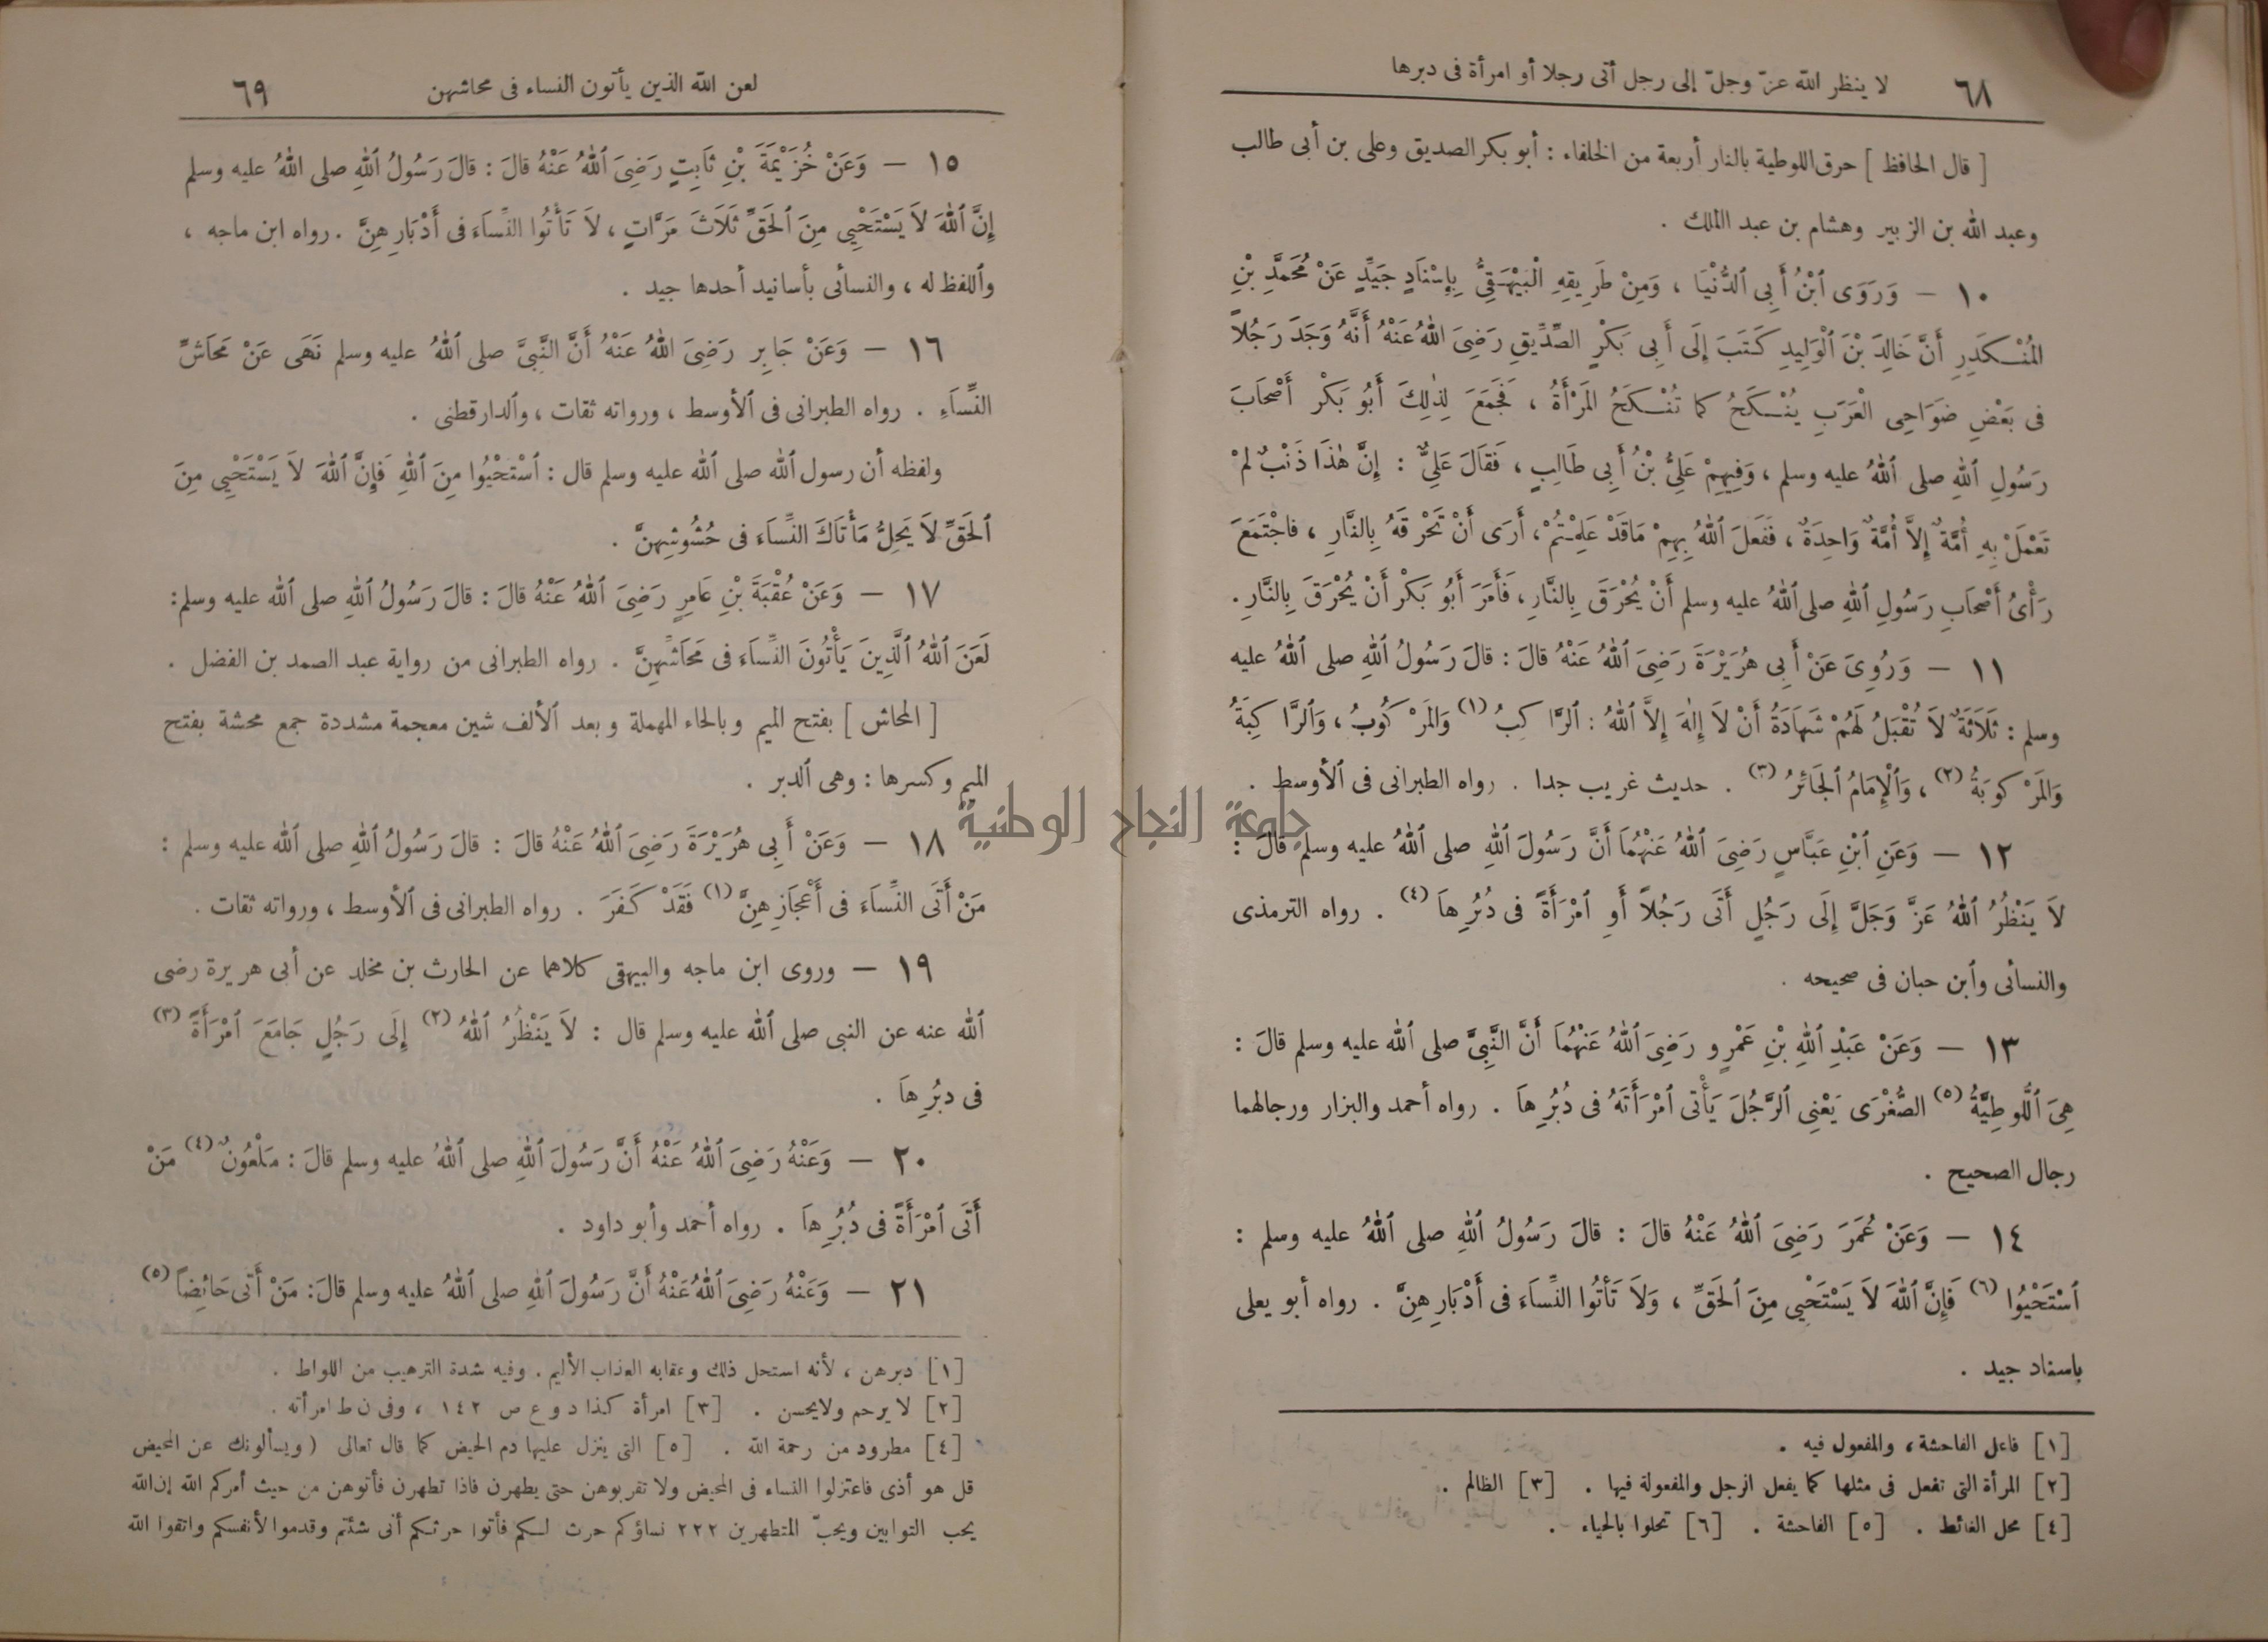 ٦٨
لا ينظر الله عزّ وجلّ إلى رجل أتى رجلا أو امرأة فى دبرها
[ قال الحافظ ] حرق اللوطية بالنار أربعة من الخلفاء : أبو بكر الصديق وعلى بن أبى طالب
وعبد الله بن الزبير وهشام بن عبد الملك .
١٠ — وَرَوَى ٱبْنُ أَبِى ٱلدُّنْيَا ، وَمِنْ طَرِيقِهِ الْبَيْهَقِىُّ بِإِسْنَادٍ جَيِّدٍ عَنْ مُحَمَّدِ بْنِ
المُنْكَدِرِ أَنَّ خَالِدَ بْنَ ٱلْوَلِيدِ كَتَبَ إِلَى أَبِى بَكْرٍ الصِّدِّيقِ رَضِىَ ٱللهُ عَنْهُ أَنَّهُ وَجَدَ رَجُلاً
فى بَعْضِ ضَوَاحِى الْعَرَبِ يُنْكَحُ كما تُنْكَحُ المَرْأَةُ ، فَجَمَعَ لِذٰلِكَ أَبُو بَكْرٍ أَصْحَابَ
رَسُولِ ٱللهِ صلى ٱللهُ عليه وسلم ، وَفِيهِمْ عَلِىُّ بْنُ أَبِى طَالِبٍ ، فَقَالَ عَلِىٌّ : إِنَّ هٰذَا ذَنْبٌ لمْ
تَعْمَلْ بِهِ أُمَّةٌ إِلاَّ أُمَّةٌ وَاحِدَةٌ ، فَفَعَلَ ٱللهُ بِهِمْ مَاقَدْ عَلِمْتُمْ ، أَرَى أَنْ تَحْرِقَهُ بِالنَّارِ ، فاجْتَمَعَ
رَأْىُ أَصْحَابِ رَسُولِ ٱللهِ صلى ٱللهُ عليه وسلم أَنْ يُحْرَقَ بِالنَّارِ ، فَأَمَرَ أَبُو بَكْرٍ أَنْ يُحْرَقَ بِالنَّارِ .
١١ — وَرُوِىَ عَنْ أَبِى هُرَيْرَةَ رَضِىَ ٱللهُ عَنْهُ قالَ : قالَ رَسُولُ ٱللهِ صلى ٱللهُ عليه
وسلم : ثَلَاثَةٌ لاَ تُقْبَلُ لَهُمْ شَهَادَةُ أَنْ لاَ إِلٰهَ إِلاَّ ٱللهُ : ٱلرَّاكِبُ (١) وَالمَرْكُوبُ ، وَٱلرَّاكِبَةُ
وَالمَرْكوبَةُ (٢) ، وَٱلْإِمَامُ ٱلجَائِرُ (٣) . حديث غريب جدا . رواه الطبرانى فى الأوسط .
١٢ — وَعَنِ ٱبْنِ عَبَّاسٍ رَضِىَ ٱللهُ عَنْهُمَا أَنَّ رَسُولَ ٱللهِ صلى ٱللهُ عليه وسلم قالَ :
لاَ يَنْظُرُ ٱللهُ عَزَّ وَجَلَّ إِلَى رَجُلٍ أَتَى رَجُلاً أَوِ ٱمْرَأَةً فى دُبُرِهاَ (٤) . رواه الترمذى
والنسائى وٱبن حبان فى صحيحه .
١٣ — وَعَنْ عَبْدِ ٱللهِ بْنِ عَمْرٍو رَضِىَ ٱللهُ عَنْهُمَا أَنَّ النَّبِىَّ صلى ٱلله عليه وسلم قالَ :
هِىَ ٱللُّوطِيَّةُ (٥) الصُّغْرَى يَعْنِى ٱلرَّجُلَ يَأْتى ٱمْرَأَتَهُ فى دُبُرِهاَ . رواه أحمد والبزار ورجالهما
رجال الصحيح .
١٤ — وَعَنْ عُمَرَ رَضِىَ ٱللهُ عَنْهُ قالَ : قالَ رَسُولُ ٱللهِ صلى ٱللهُ عليه وسلم :
ٱسْتَحْيُوا (٦) فَإِنَّ ٱللهَ لاَ يَسْتَحْيِى مِنَ ٱلحَقِّ ، وَلاَ تَأْتُوا النِّسَاءَ فى أَدْبَارِهِنَّ . رواه أبو يعلى
بإسناد جيد .
[١] فاعل الفاحشة ، والمفعول فيه .
[٢] المرأة التى تفعل فى مثلها كما يفعل الرجل والمفعولة فيها . [٣] الظالم .
[٤] محل الغائط . [٥] الفاحشة . [٦] تحلوا بالحياء .
لعن الله الذين يأتون النساء فى محاشهن
٦٩
١٥ — وَعَنْ خُزَيْمَةَ بْنِ ثَابِتٍ رَضِىَ ٱللهُ عَنْهُ قالَ : قالَ رَسُولُ ٱللهِ صلى ٱللهُ عليه وسلم
إِنَّ ٱللهَ لاَ يَسْتَحْيِى مِنَ ٱلحَقِّ ثَلَاثَ مَرَّاتٍ ، لاَ تَأْتُوا النِّسَاءَ فى أَدْبَارِهِنَّ . رواه ابن ماجه ،
وٱللفظ له ، والنسائى بأسانيد أحدها جيد .
١٦ — وَعَنْ جَابِرٍ رَضِىَ ٱللهُ عَنْهُ أَنَّ النَّبِىَّ صلى ٱللهُ عليه وسلم نَهَى عَنْ مَحَاشِّ
النِّسَاءِ . رواه الطبرانى فى ٱلأوسط ، ورواته ثقات ، وٱلدارقطنى .
ولفظه أن رسول ٱلله صلى ٱلله عليه وسلم قال : ٱسْتَحْيُوا مِنَ ٱللهِ فَإِنَّ ٱللهَ لاَ يَسْتَحْيِى مِنَ
ٱلحَقِّ لاَ يَحِلُّ مَأْتَاكَ النِّسَاءَ فى حُشُوشِهِنَّ .
١٧ — وَعَنْ عُقْبَةَ بْنِ عَامِرٍ رَضِىَ ٱللهُ عَنْهُ قالَ : قالَ رَسُولُ ٱللهِ صلى ٱلله عليه وسلم :
لَعَنَ ٱللهُ ٱلَّذِينَ يَأْتُونَ النِّسَاءَ فى مَحَاشِّهِنَّ . رواه الطبرانى من رواية عبد الصمد بن الفضل .
[ المحاش ] بفتح الميم وبالحاء المهملة وبعد ٱلألف شين معجمة مشددة جمع محشة بفتح
الميم وكسرها : وهى ٱلدبر .
١٨ — وَعَنْ أَبِى هُرَيْرَةَ رَضِىَ ٱللهُ عَنْهُ قالَ : قالَ رَسُولُ ٱللهِ صلى ٱلله عليه وسلم :
مَنْ أَتَى النِّسَاءَ فى أَعْجَازِهِنَّ (١) فَقَدْ كَفَرَ . رواه الطبرانى فى ٱلأوسط ، ورواته ثقات .
١٩ — وروى ابن ماجه والبيهقى كلاهما عن الحارث بن مخلد عن أبى هريرة رضى
ٱلله عنه عن النبى صلى ٱلله عليه وسلم قال : لاَ يَنْظُرُ ٱللهُ (٢) إِلَى رَجُلٍ جَامَعَ ٱمْرَأَةً (٣)
فى دبُرِهاَ .
٢٠ — وَعَنْهُ رَضِىَ ٱللهُ عَنْهُ أَنَّ رَسُولَ ٱللهِ صلى ٱللهُ عليه وسلم قالَ : مَلْعُونٌ (٤) مَنْ
أَتَى ٱمْرَأَةً فى دُبُرِهاَ . رواه أحمد وأبو داود .
٢١ — وَعَنْهُ رَضِىَ ٱللهُ عَنْهُ أَنَّ رَسُولَ ٱللهِ صلى ٱللهُ عليه وسلم قالَ : مَنْ أَتى حَائِضاً (٥)
[١] دبرهن ، لأنه استحل ذلك وعقابه العذاب الأليم . وفيه شدة الترهيب من اللواط .
[٢] لا يرحم ولا يحسن . [٣] امرأة كذا د و ع ص ١٤٢ ، وفى ن ط امرأته .
[٤] مطرود من رحمة الله . [٥] التى ينزل عليها دم الحيض كما قال تعالى ( ويسألونك عن المحيض
قل هو أذى فاعتزلوا النساء فى المحيض ولا تقربوهن حتى يطهرن فاذا تطهرن فأتوهن من حيث أمركم الله إن الله
يحب التوابين ويحبّ المتطهرين ٢٢٢ نساؤكم حرث لكم فأتوا حرثكم أنى شئتم وقدموا لأنفسكم واتقوا الله
جامعة النجاح الوطنية